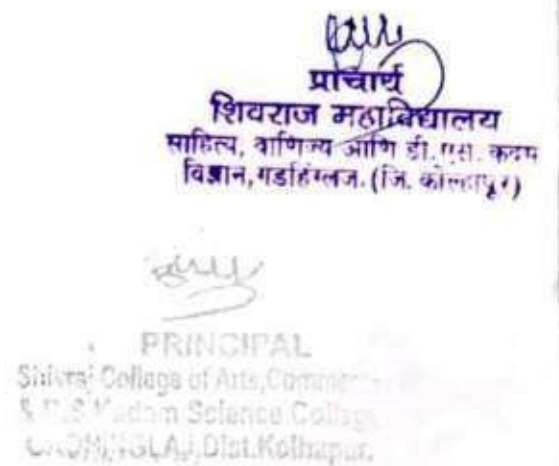 प्राचार्य
शिवराज महाविद्यालय
साहित्य, वाणिज्य आणि डी. एस. कदम
विज्ञान, गडहिंग्लज. (जि. कोल्हापूर)
PRINCIPAL
Shivraj College of Arts, Commerce
& D.S. Kadam Science College
GADHINGLAJ, Dist. Kolhapur.